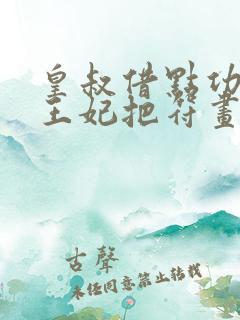 皇叔借點功
王妃把符畫
古聲
未經同意禁止轉載